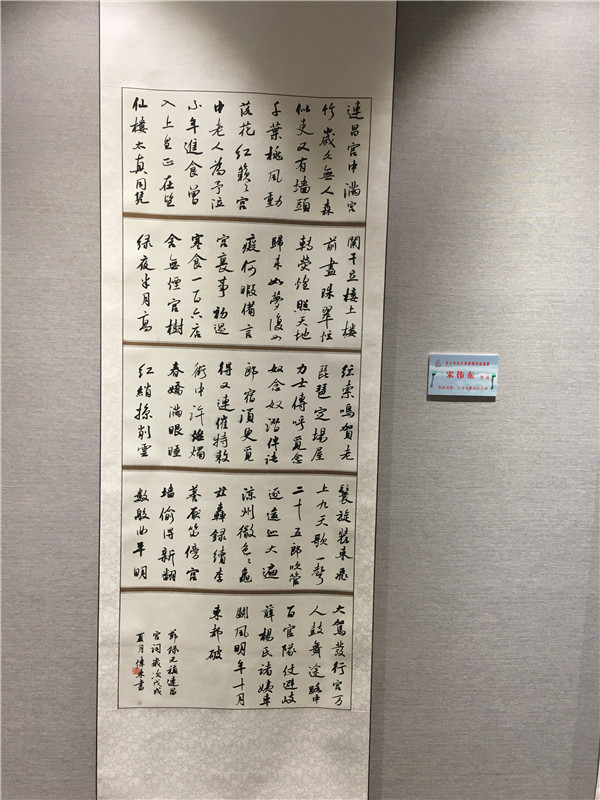 連昌宮中滿宮
竹歲久無人森
似束又有墻頭
千葉桃風動
落花紅簌々宮
中老人為予泣
小年進食曾
入上皇正在望
仙樓太真同憑
闌干立樓上樓
前盡珠翠炫
轉熒煌照天地
歸來如夢復如
癡何暇備言
宮裏事初過
寒食一百六店
舍無煙宮樹
綠夜半月高
絃索鳴賀老
琵琶定場屋
力士傳呼覓念
奴念奴潛伴諸
郎宿須臾覓
得又連催特敕
街中許燃燭
春嬌滿眼睡
紅綃掠削雲
鬟旋裝束飛
上九天歌一聲
二十五郎吹管
逐逡巡大遍
涼州徹色々龜
茲轟錄續李
謩壓笛傍宮
墻偷得新翻
數般曲平明
大駕發行宮万
人鼓舞途路中
百官隊仗避岐
薛楊氏諸姨車
鬭風明年十月
東都破
節錄元稹連昌
宮詞歲次戊戌
夏月偉東書
宋伟东